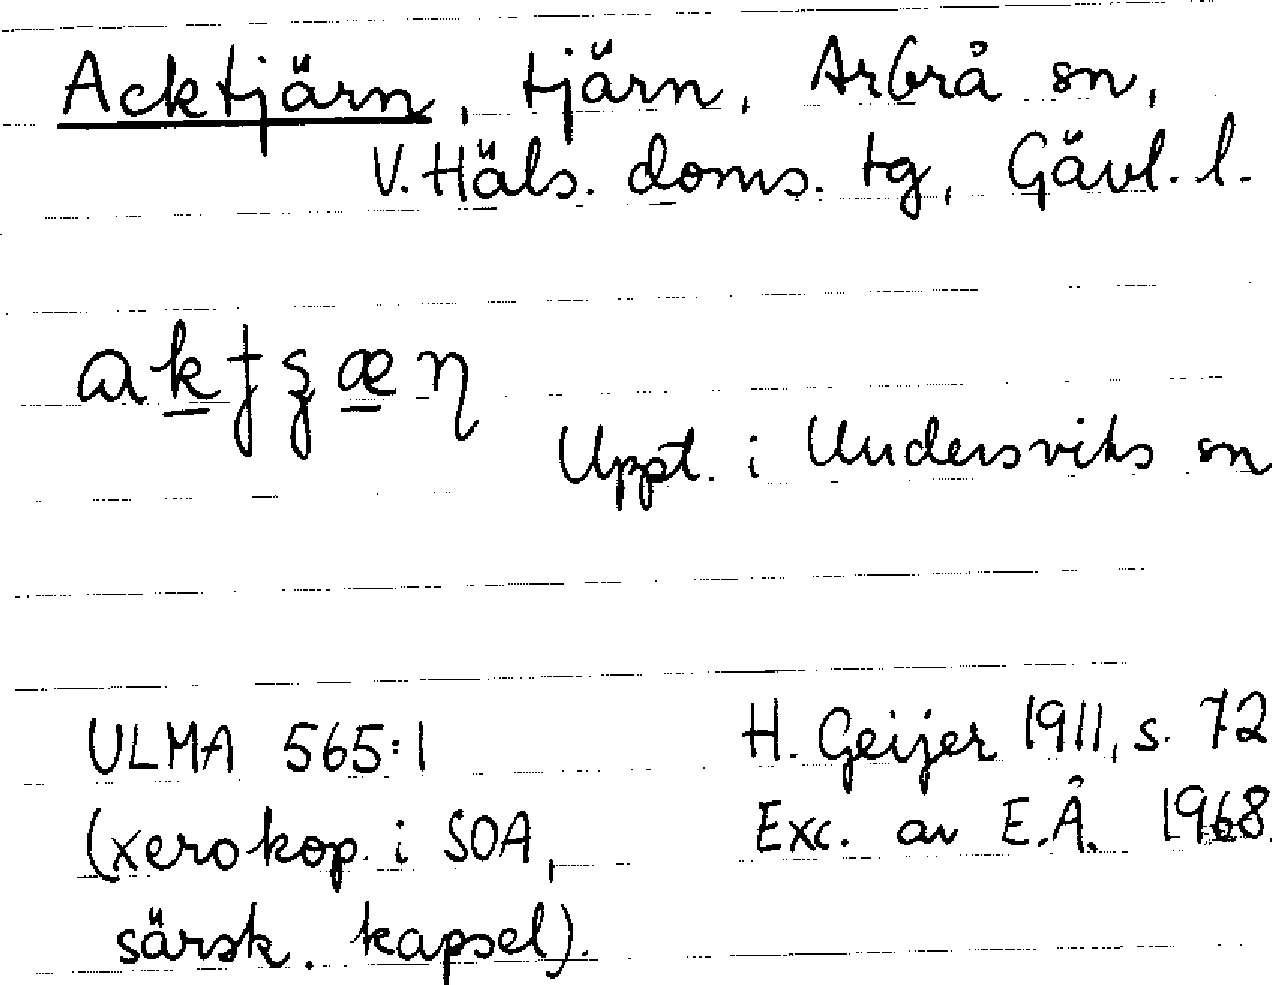 Acktjärn, tjärn, Arbrå sn,
V. Häls. doms. tg, Gävl. l.
a<u>k</u>ɟʓ<u>æ</u>η
Uppt. i Undersviks sn
ULMA 565:1
(xerokop. i SOA,
särsk. kapsel).
H. Geijer 1911, s. 72
Exc. av E.Å. 1968.